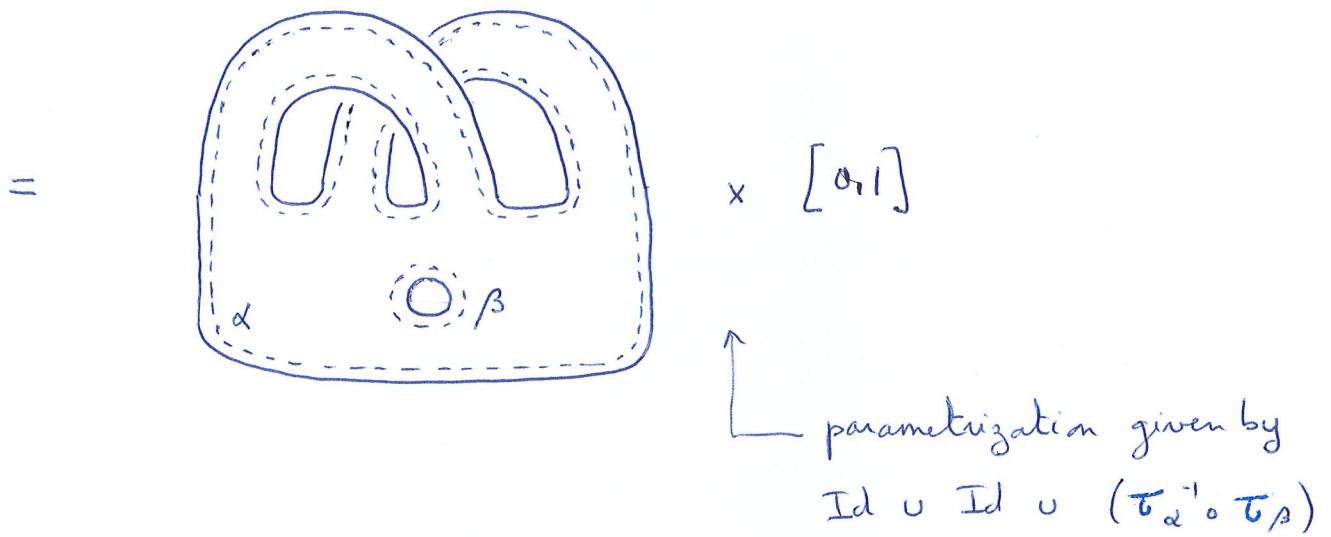 = × [0,1]
α β
parametrization given by
Id ∪ Id ∪ (τ_α⁻¹ ∘ τ_β)